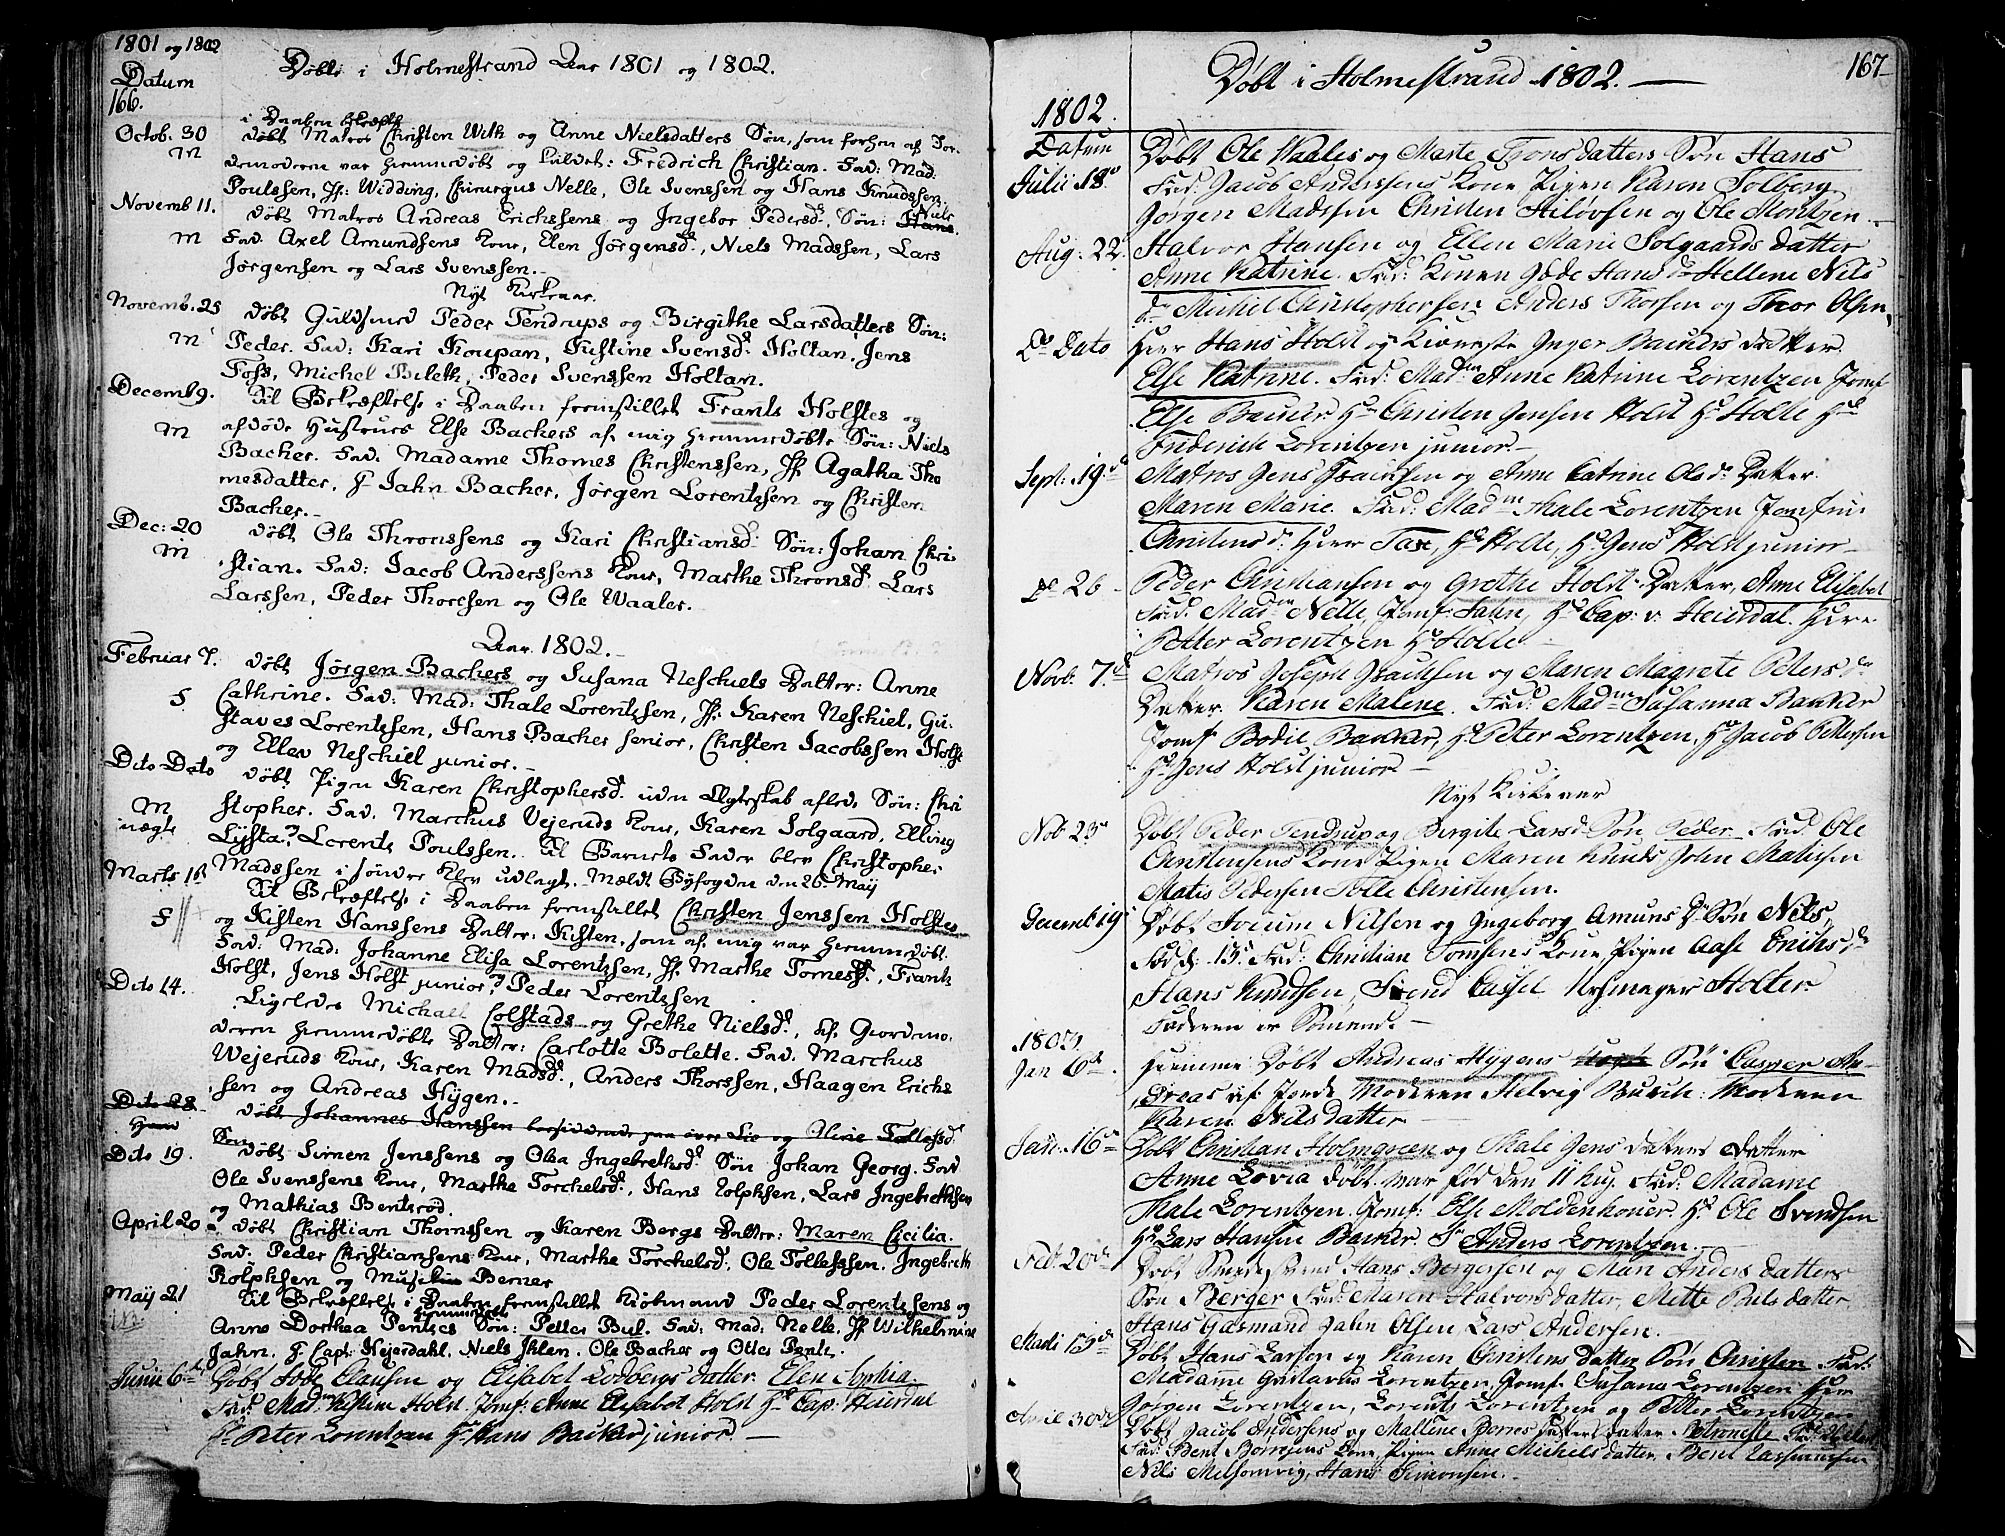 1801 og 1802
Døbte i Holmestrand Aar 1801 og 1802.
Datum
166.
i Daaben bekræftet
Octob. 30 døbt Matros Christen With og Anne Nielsdatters Søn, som forhen af Jor-
M demoderne var hiemmedøbt og kaldet: Fredrich Christian. Fad: Mad:
Poulssen, Jf: Widding, Chirurgus Nelle, Ole Svenssen og Hans Knudssen.
Novemb 11. døbt Matros Andreas Erichssens og Ingebor Pedersd. Søn: Hans. Niels
M Fad. Axel Amundsens Kone, Elen Jørgensd., Niels Madssen, Lars
Jørgensen og Lars Svenssen.
Nyt Kirkeaar.
Novemb. 25 døbt Guldsmed Peder Tendrups og Birgithe Larsdatters Søn:
M Peder. Fad: Kari Koupan, Kistine Svensd. Holtan, Jens
Foss, Michel Bileth, Peder Svenssen Holtan.
Decemb 9. Til Bekræftelse i Daaben fremstillet Frants Holstes og
M afdøde Hustrues Else Bachers af mig hiemmedøbte Søn: Niels
Bacher. Fad: Madame Thomes Christenssen, Jf. Agatha Tho
mesdatter, H Jahn Bacher, Jørgen Lorentzsen og Christen
Bacher.
Dec: 20 døbt Ole Thronssens og Kari Christiansd. Søn: Johan Chri-
M stian. Fad: Jacob Anderssens Kone, Marthe Thronsd. Lars
Larssen, Peder Thoresen og Ole Waaler.
Aar 1802.
Februar 7. døbt Jørgen Bachers og Susana Neschiels Datter: Anne
S Cathrine. Fad: Mad: Thale Lorentzsen, Jf. Karen Neschiel, Gu-
staves Lorentzsen, Hans Bacher senior, Christen Jacobssen Holst
og Ellev Neschiel junior.
Dito Dato døbt Pigen Karen Christophersd. uden Ægteskab aflede Søn: Chri
M stopher. Fad. Marchus Vejeruds Kone, Karen Solgaard, Elling
uægte Lysta? Lorentz Poulssen. Til Barnets Fader blev Christopher
Madssen i Søndre Klev udlagt. Meldt Byfogden den 26 Maij
Marts 13 Til Bekræftelse i Daaben fremstillet Christen Jenssen Holstes
S og Kisten Hanssens Datter: Kisten, som af mig var hiemmedøbt.
Fad: Mad: Johanne Elisa Lorentzsen, Jf. Marthe Tornesd., Frants
Holst, Jens Holst junior og Peder Lorentzsen
Dito 14. Ligeledes Michael Colstads og Grethe Nielsd., af Giordemo-
deren hiemmedøbte Datter: Carlotte Bolette. Fad. Marchus
Wejeruds Kone, Karen Madsd., Anders Thorssen, Haagen Erichs
sen og Andreas Hygen.
Dito 28 døbt Johannes Hanssen og Olene Tollefsd.
Søn
Dito 19. døbt Simen Jenssens og Olea Ingebrethsd. Søn Johan Georg. Fad
Ole Svenssens Kone, Marthe Torchelsd., Hans Rolphsen, Lars Ingebrethsen
og Mathias Bentsrød.
April 20 døbt Christian Thomssen og Karen Bergs Datter: Maren Cicilia.
Fad: Peder Christiansens Kone, Marthe Torchelsd., Ole Tollefssen, Ingebreth
Rolphsen og Musikus Berner
Maij 21 Til Bekræftelse i Daaben fremstillet Kiøbmand Peder Lorentzsens og
hiemmedøbt
Anne Dorthea Pentzes Søn: Petter Bul. Fad: Mad: Nelle, Jf Wilhelmine
Jahn, H. Capt: Hejerdahl, Niels Ihlen, Ole Bacher og Otto Pentz.
Junii 6te Døbt Lobe Clausen og Elisabet Lodbergs datter Elen Sophia.
Fad: Madm Kistine Holst, Jomf: Anne Elisabet Holst Hr Cap: Heierdal
Hr Peter Lorentzen Hr Hans Backer junior.
Døbt i Holmestrand 1802.
167
1802.
Datum
Julii 18de Døbt Ole Waales og Marte Tronsdatters Søn Hans
Fad: Jacob Anderssens Kone Pigen Karen Solberg
Jørgen Madssen Christen Stilovsen og Ole Moritzen.
Aug: 22 Halvor Hansen og Ellen Marie Solgaards datter
Anne Katrine. Fad: Konen Gøde Hansdr Hellene Nils
dr Michel Christophersen Anders Thorsen og Thor Olsen,
Do Dato Herr Hans Holst og Kiæreste Inger Backers datter.
Else Katrine. Fad: Madm Anne Katrine Lorentzen Jomf
Else Backer Hr Christen Jensen Holst Hr Holte Hr
Friderich Lorentzen junior.
Sept: 19de Matros Jens Isachsen og Anne Catrine Olsdr Datter
Maren Marie. Fad: Madm Thale Lorentzen Jomfru
Christensdr Herr Tax, Hr Holte, Hr Jens Holst junior
de 26 Peder Christiansen og Grethe Holst Datter, Anne Elisabet
Fad: Madm Nelle, Jomf: Jahn, Hr Cap: v: Heierdal. Herr
Petter Lorentzen Hr Holte
Novb: 7de Matros Joseph Isachsen og Maren Magrete Peters
Datter Karen Malene. Fad: Madm Susanna Backer
Jomf Bodil Backer, Hr Peter Lorentzen, Hr Jacob Pettersen
Hr Jens Holst junior
Nyt Kirkeaar
Nob 23de Døbt Peder Tendrup og Bergite Larsd Søn Peder. Fad. Ole
Christensens Kone Pigen Maren Knuds John Matissen
Matis Pedersen Tolle Christensen.
Decemb 19 Døbt Jocum Nilsen og Ingeborg Amunsdr Søn Nils,
Fød d: 13. Fad: Christian Tomsens Kone Pigen Aase Erichsdr
Hans Knudsen, Svend Cassel Uhrmager Holter
Faderen er Sømand.
1803,
Jan 6te Hiemme Døbt Andreas Hygens Søn Casper An-
dreas af Jorde Moderen Helvig Buuch: Moderen
Karen Nilsdatter
Jan: 16de Døbt Christian Holmgreen og Thale Jens datters datter
Anne Lovia døbt. var fød den 11 huj. Fad: Madame
Thale Lorentzen. Jomf: Else Moldenhouer. Hr Ole Svendsen
Hr Lars Hansen Backer. Sr Anders Lorentzen.
Feb: 20de Døbt Smedesvend Hans Borgersen og Mari Anders datters
Søn Berger Fad: Maren Halvorsdatter, Mette Poulsdatter
Hans Gasmand Jahn Olsen, Lars Andersen.
Marti 13de Døbt Hans Larsen og Karen Christensdatter Søn Christen Fad:
Madame Gustavus Lorentzen, Jomf. Susana Lorentzen Herr
Jørgen Lorentzen, Lorents Lorentzen og Petter Lorentzen
April 30de Døbt Jacob Andersens og Mallene Borres datters datter Petronelle
Fad: Bent Borresens Kone Pigen Anne Michelsdatter, Bent Rasmussen
Nils Melsomvig, Hans Simonsen.